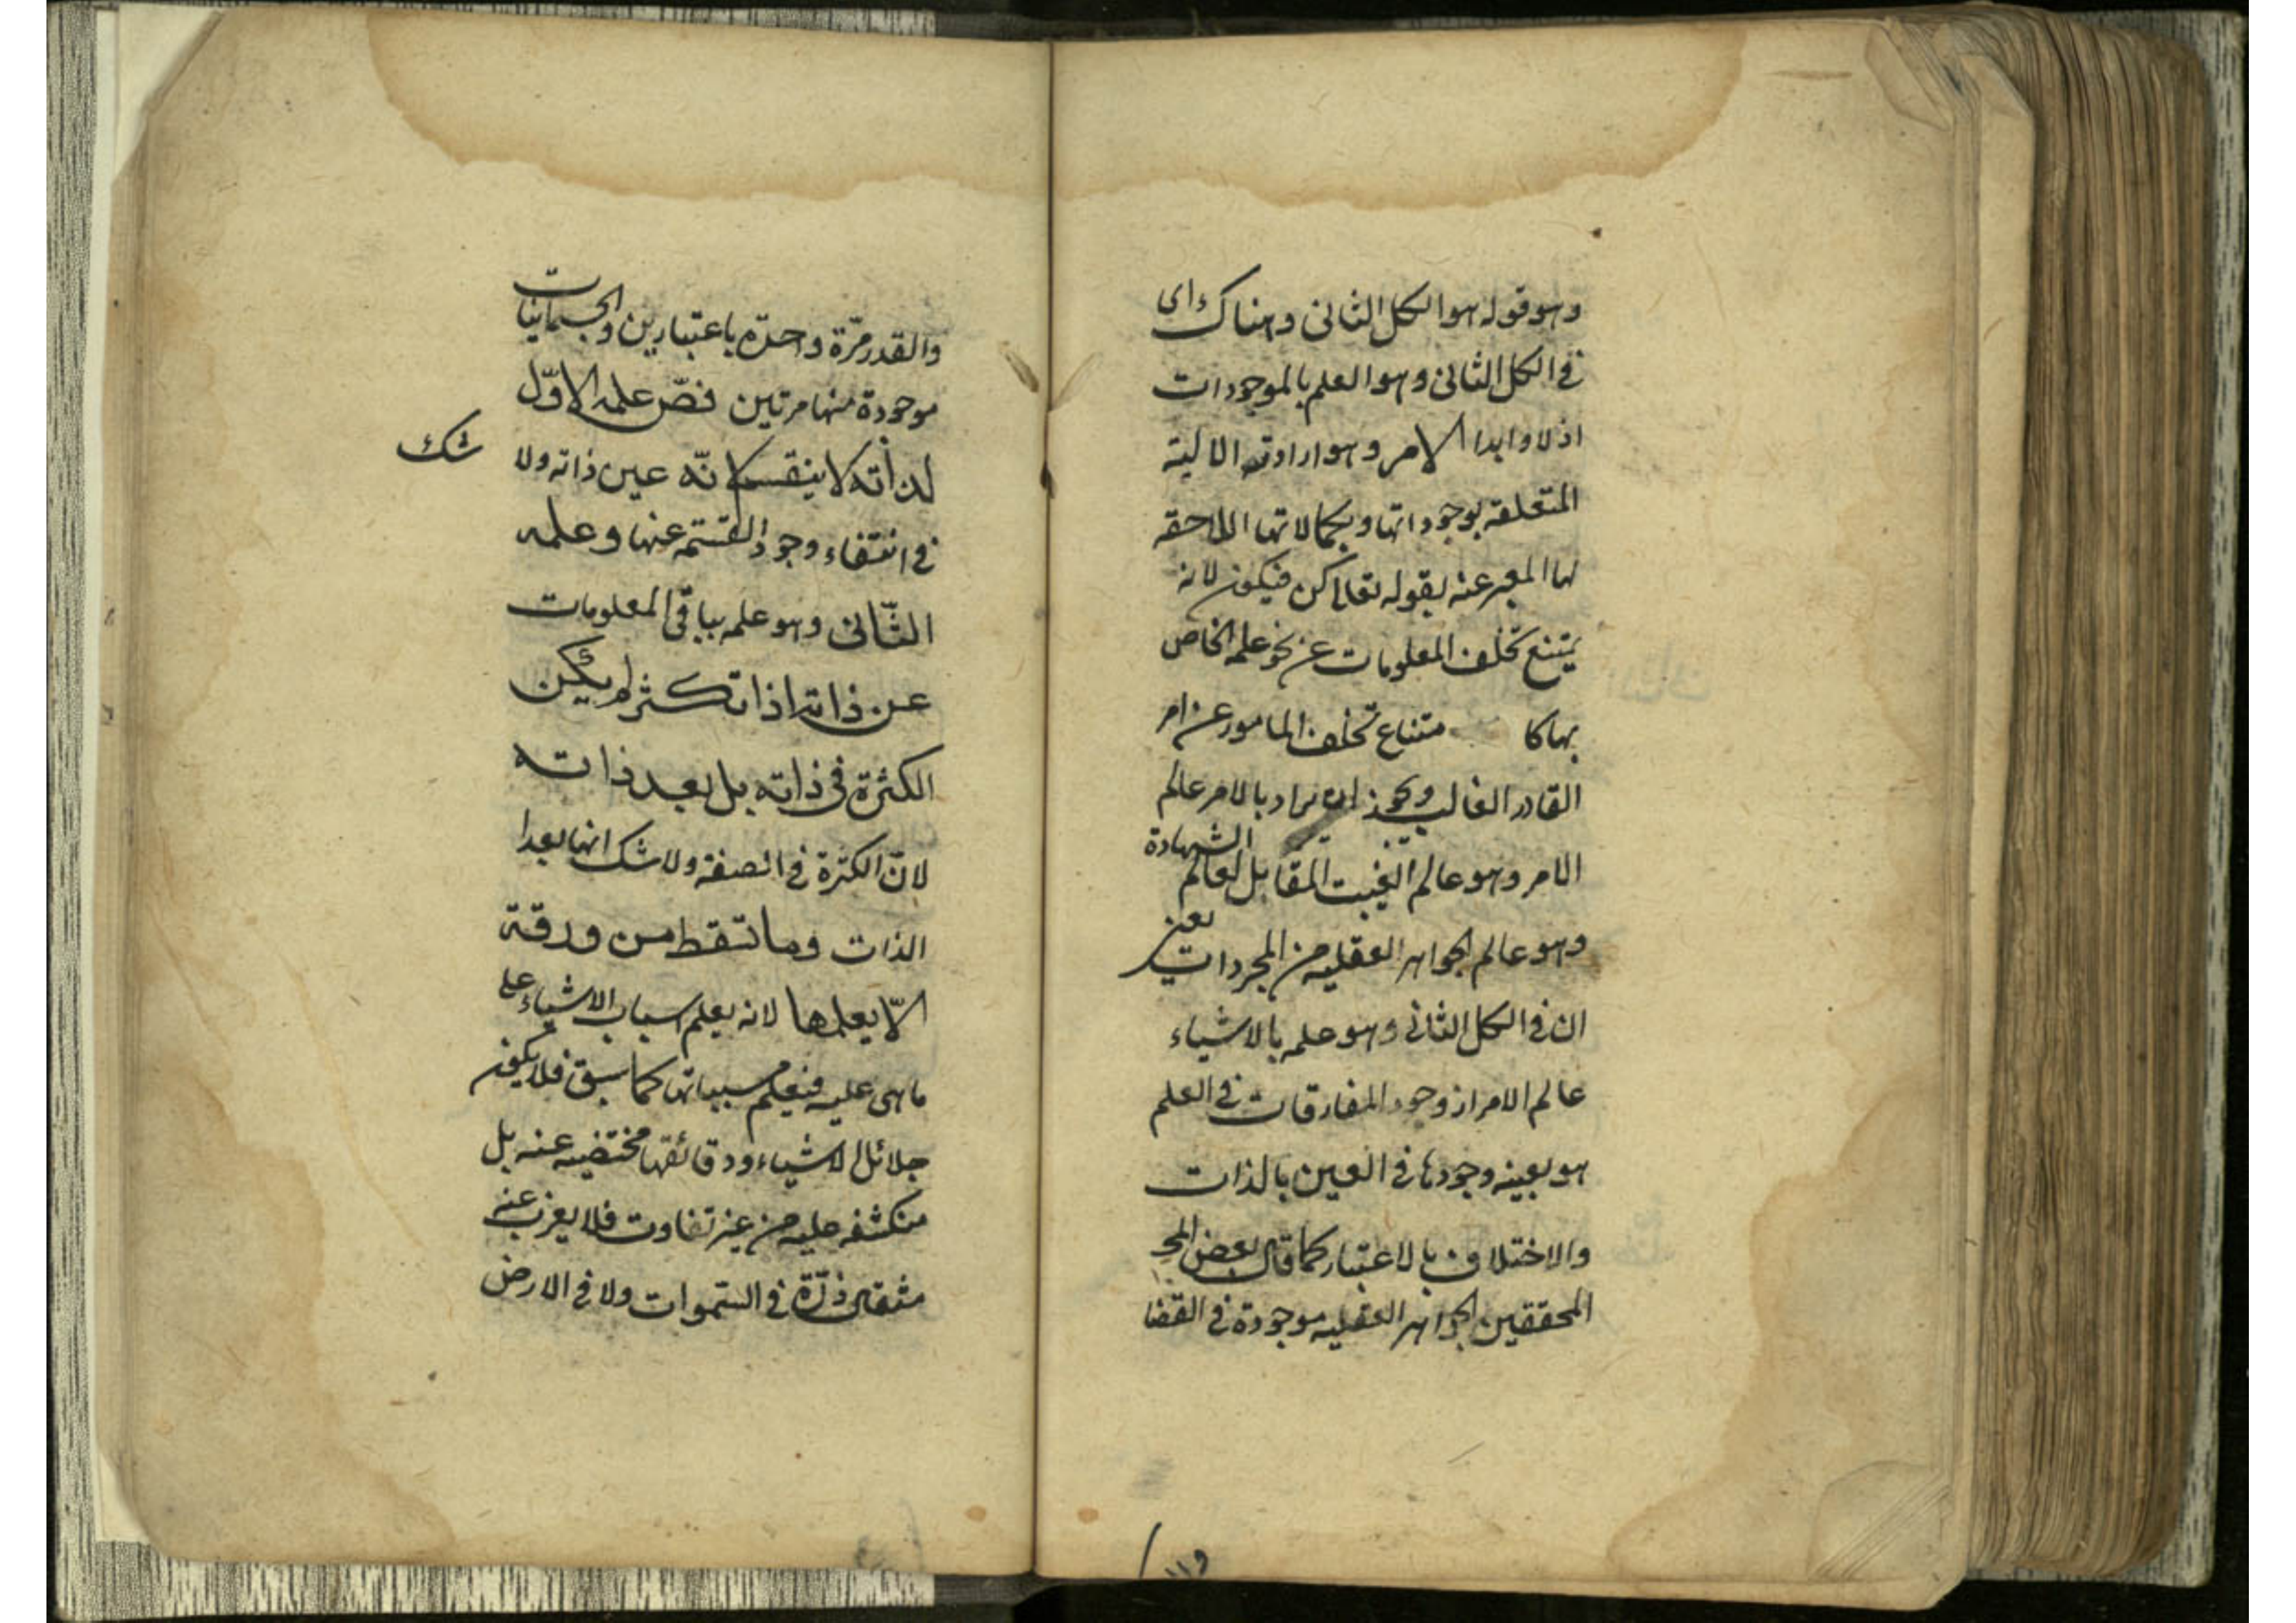 وهو قوله هو الكل الثانى وهناك اى
فى الكل الثانى وهو العلم بالموجودات
ازلا وابدا الامر وهو ارادته الالية
المتعلقه بوجوداتها وبكمالاتها اللاحقه
لها المعبر عنه بقوله تعالى كن فيكون لانه
يمتنع تخلف المعلومات عن نحو علمه الخاص
بها كا متناع تخلف المامور عن امر
القادر الغالب ويجوز ان يراد بالامر عالم
الامر وهو عالم الغيب المقابل لعالم الشهادة
وهو عالم الجواهر العقليه من المجردات يعنى
ان فى الكل الثانى وهو علمه بالاشياء
عالم الامر اذ وجود المفارقات فى العلم
هو بعينه وجودها فى العين بالذات
والاختلاف بالاعتبار كما قال بعض المح
المحققين الجواهر العقليه موجودة فى القضا
١١٩
والقدر مرّة واحدّه باعتبارين والجسمانيّات
موجودة منها مرتين فصّ علمه الاوّل
لذاته لا ينقسم لانّه عين ذاته ولا
شك
فى انتفاء وجود القسمه عنها وعلمه
الثّانى وهو علمه بباقى المعلومات
عن ذاته اذا تكثر لم يكن
الكثرة فى ذاته بل بعد ذاته
لانّ الكثرة فى الصفة ولا شك انها بعد ا
الذات وما تسقط من ورقة
الّا يعلمها لانه يعلم اسباب الاشياء على
ما هى عليه فيعلم مسبباتها كما سبق فلا يكون
جلائل الاشياء ودقائقها مختفيه عنه بل
منكشفه عليه من غير تفاوت فلا يعزب عنه
مثقال ذرّة فى السّموات ولا فى الارض